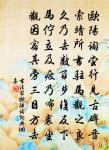 歐陽詢嘗行見古碑晉
索靖所書駐馬觀之良
久乃去數百步復反下
馬佇立及疲乃布裘坐
觀因宿其旁三日方去